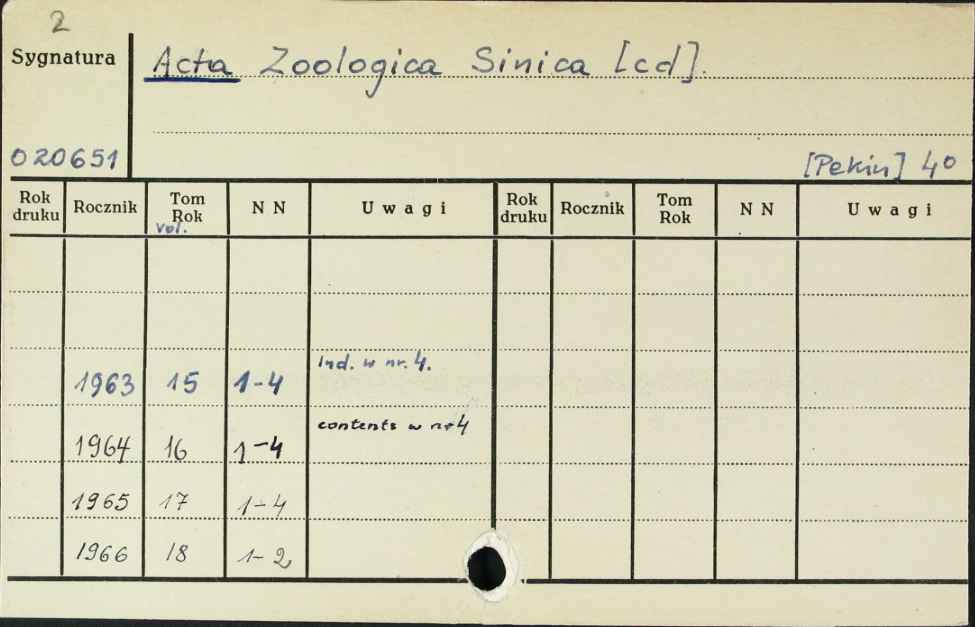 2
Sygnatura Acta Zoologica Sinica [cd].
020651 [Pekin] 4°
Rok druku Rocznik Tom Rok vol. N N Uwagi Rok druku Rocznik Tom Rok N N Uwagi
1963 15 1-4 Ind. w nr. 4.
1964 16 1-4 contents w nr 4
1965 17 1-4
1966 18 1-2